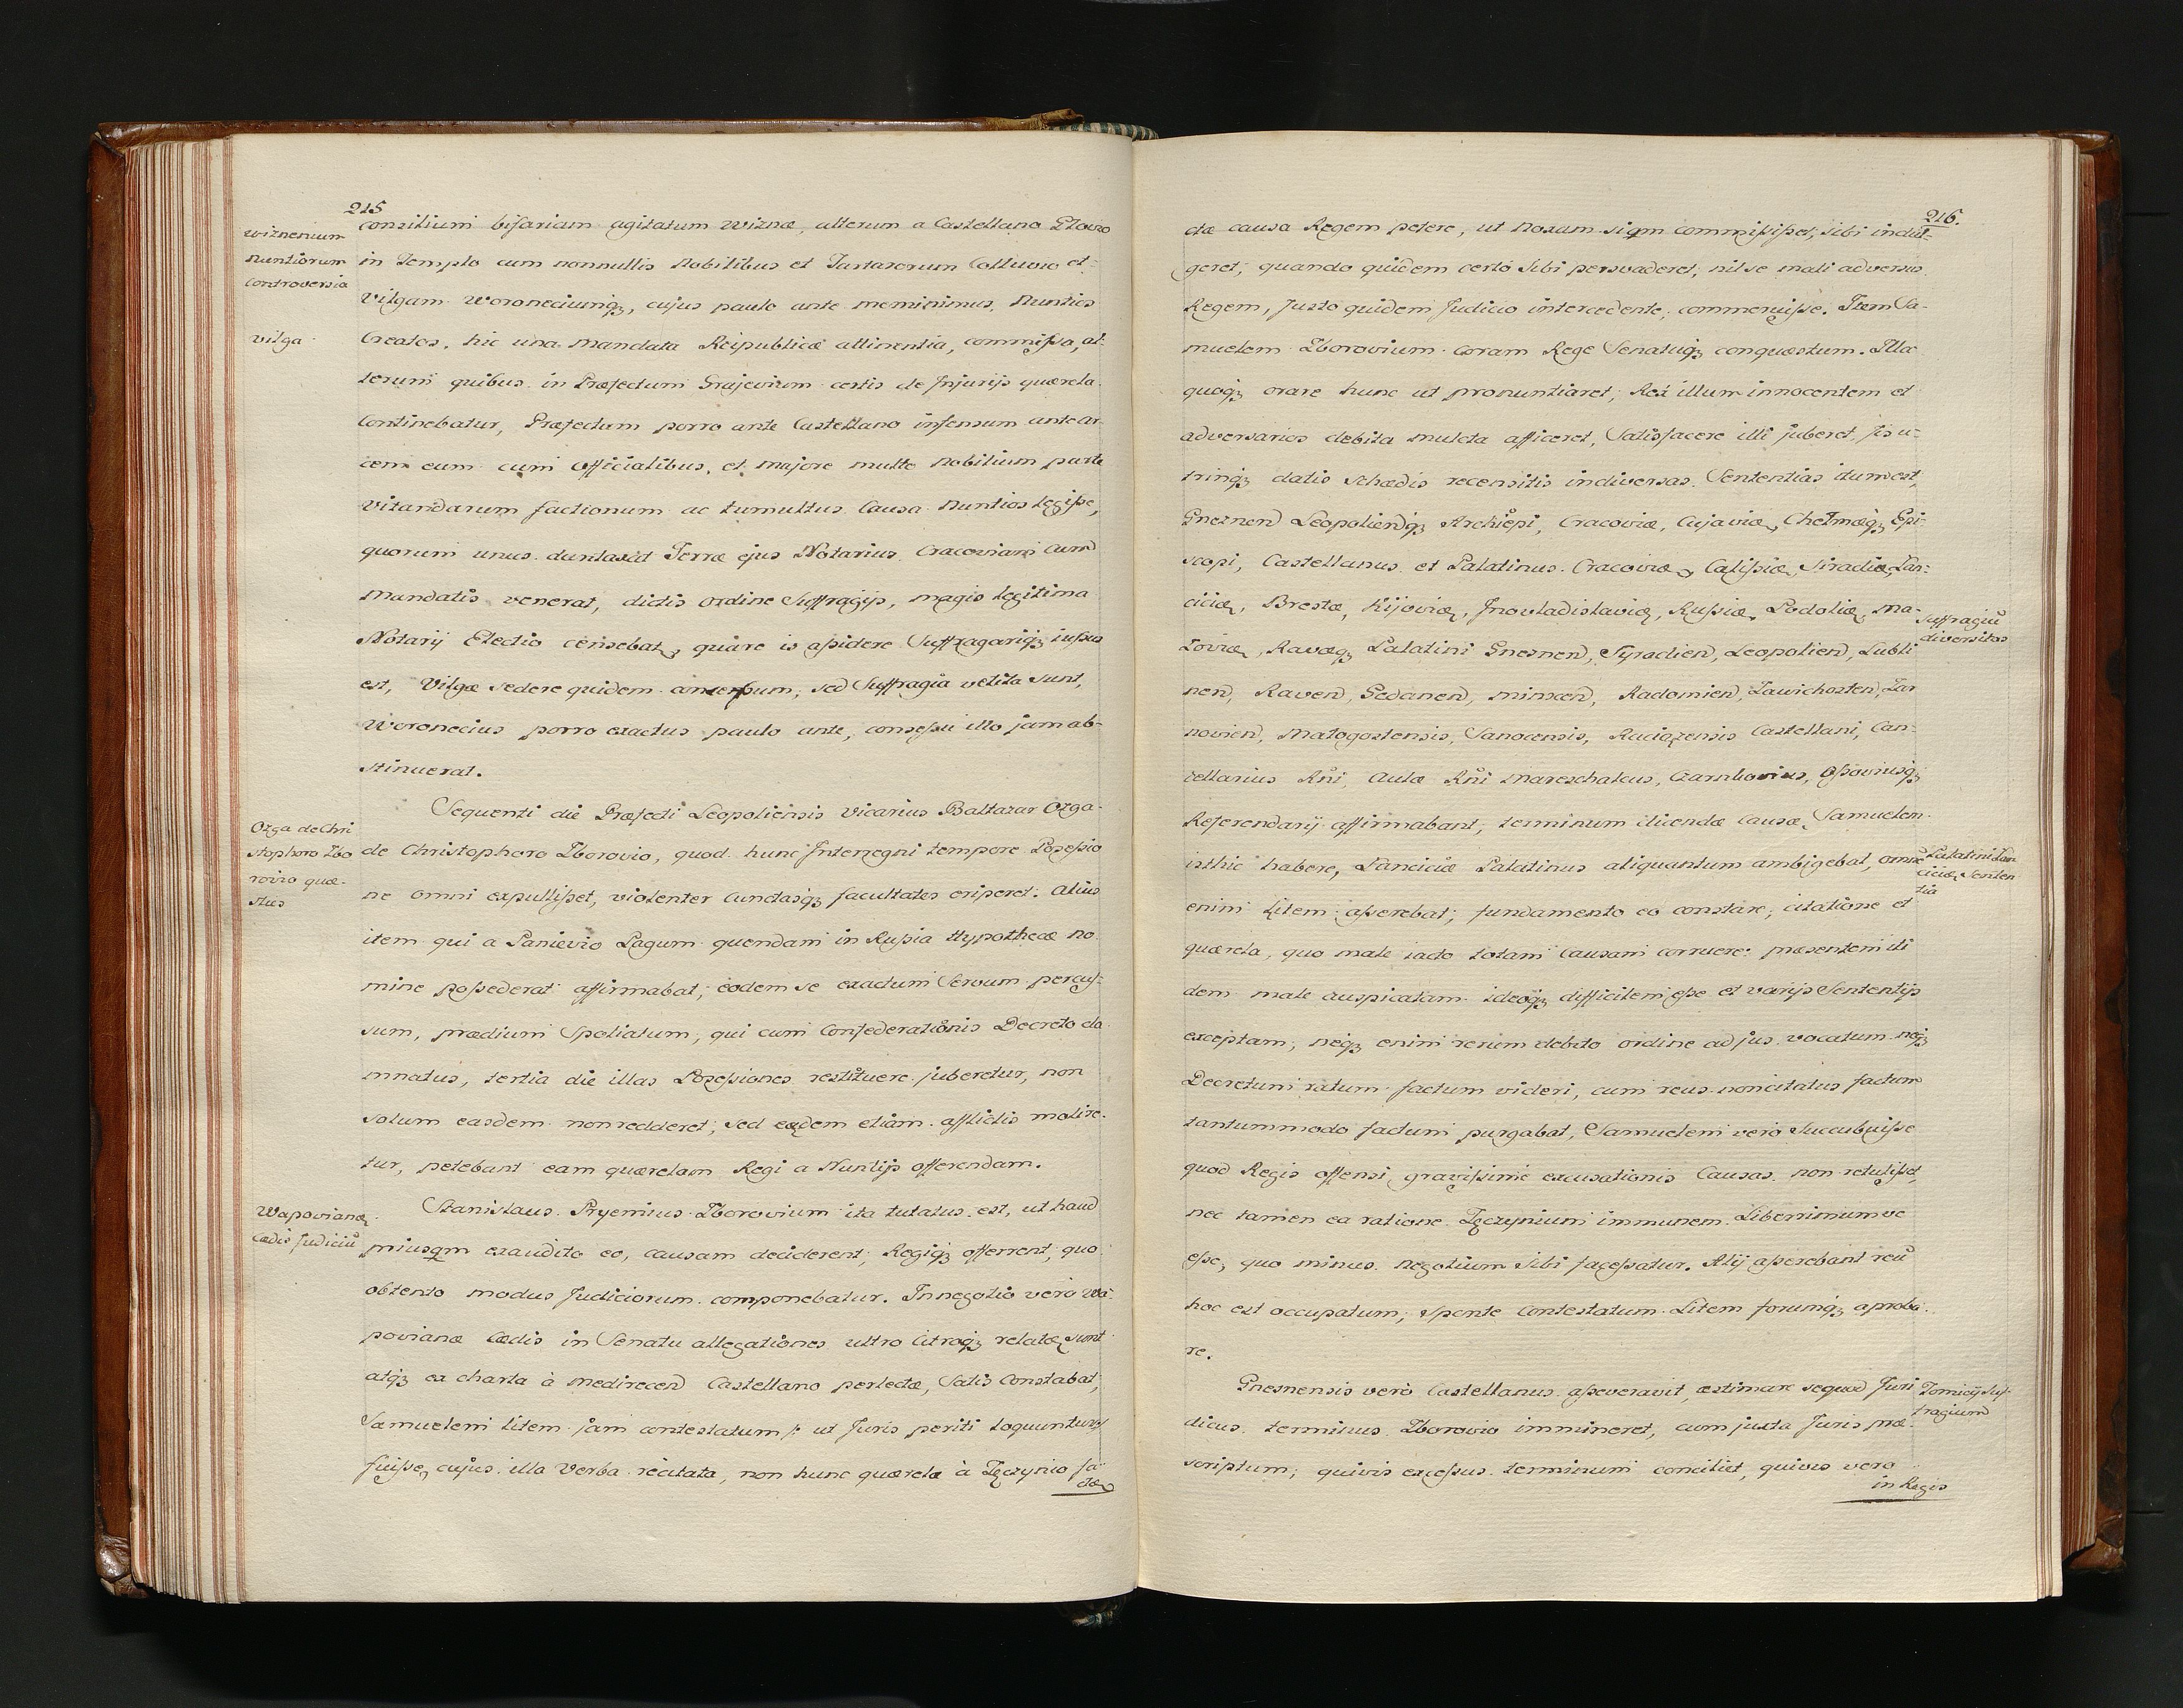 215
Wiznensium
nuntiorum
controversia
vilga
consilium bifariam agitatum Wiznæ, alterum a Castellano
in Templo cum nonnullis Nobilitibus et Tartarorum Colluvio et
Vilgam Woroneciumqȝ, cujus paulo ante meminimus, Nuntios
Creatos, hic una mandata Reipublicæ attinentia, commissa, al-
terum quibus in Præfectum Grajevium certis de Injurijs quærela
Continebatur, Præfectum porro ante Castellano infensum ante ar
cem eum cum Officialibus, et majore multo Nobilium parte
Vitandarum factionum ac tumultus Causa Nuntios legisse,
quorum unus duntaxat Terræ ejus Notarius Cracoviam cum
Mandatis venerat, dictis ordine Suffragijs, magis legitima
Notarij Electio censebat, quare is assidere Suffragariqȝ iussus
est, Vilgæ sedere quidem concessum, sed Suffragia vetita sunt,
Woronecius porro exactus paulo ante, consessu illo jam ab-
stinuerat.
Ozga de Chri
stophoro Zbo
rovio quæ-
stus
Sequenti die Præfecti Leopoliensis Vicarius Baltazar Ozga
de Christophoro Zborovio, quod hunc Interregni tempore Possessio
ne omni expullisset, violenter Cunctasqȝ facultates eriperet: Alius
item qui a Paniewio Pagum quendam in Russia Hypothecæ no
mine possederat affirmabat, eodem se exactum Servum percus-
sum, prædium Spoliatum, qui cum Confederationis Decreto da
mnatus, tertia die illas Possessiones restituere juberetur, non
solum easdem non redderet; sed eadem etiam afflictis molire-
tur, petebant eam quærelam Regi a Nuntijs offerendam.
Wapovianæ
Cædis Judiciū
Stanislaus Pryemius Zborovium ita tutatus est, ut haud
priusqm exaudito eo, causam deciderent; Regiqȝ offerrent, quo
obtento modus Judiciorum componebatur. In negotio vero Wa-
povianæ Cædis in Senatu allegationes ultro Citroqȝ relatæ sunt
atqȝ ex charta à Medirecen Castellano perlectæ, Satis Constabat,
Samuelem litem jam contestatum /: ut Juris periti loquuntur :/
fuisse, cujus illa Verba recitata, non hunc quærelæ à Tęczynio fa
ctæ
216.
ctæ causa Regem petere, ut noxam siqm commississet, sibi indul-
geret, quando quidem certo sibi persvaderet, nil se mali adversus
Regem, Justo quidem Judicio intercedente, commeruisse. Item Sa-
muelem Zborovium coram Rege Senatuqȝ conquæstum. Illa
quoqȝ orare hunc ut pronuntiaret, Rex illum innocentem et
adversarios debita mulcta afficeret, Satisfacere illi juberet, fis u-
trinqȝ datis schædis recensitis in diversas Sententias itum est,
Gnesnen Leopolienqȝ Archiepi, Cracoviæ, Cujaviæ, Chelmæqȝ Epi-
scopi, Castellanus et Palatinus Cracoviæ, Calissiæ, Siradiæ, Lan-
ciciæ, Brestæ, Kijoviæ, Inowladislaviæ, Russiæ, Podoliæ, Ma-
zoviæ, Ravæqȝ Palatini Gnesnen, Syradien, Leopolien, Lubli
nen, Raven, Gedanen, Radomien, Zawichosten, Tar
novien, Malogostensis, Sanocensis, Raciązensis Castellani, Can-
cellarius Rni, Aulæ Rni Mareschalcus, Czarnkovius, Ossoviusqȝ
Referendarij affirmabant, terminum dicendæ causæ, Samuelem
isthic habere, Lanciciæ Palatinus aliquantum ambigebat, omne
enim Litem asserebat; fundamento eo constare, citatione et
quærela, quo male iacto totam Causam corruere: præsentem iti
dem male auspicatam ideoqȝ difficilem esse et varijs Sententijs
exceptam, neqȝ enim rerum debito ordine ad jus vocatum neqȝ
Decretum ratum factum videri, cum reus non citatus factum
tantummodo factum purgabat, Samuelem vero Succubuisse
quod Regis offensi gravissime excusationis Causas non retulisset,
nec tamen ea ratione Tęczynium immunem Liberrimumve
esse, quo minus negotium Sibi facessatur. Alij asserebant reū
hoc est occupatum, sponte Contestatum Litem forumqȝ aproba
re.
Suffragiū
diversitas
Palatini Lan
ciciæ Senten
tia
Gnesnensis vero Castellanus asseveravit, æstimare se quod Juri
dicus terminus Zborovio immineret, cum juxta Juris præ-
scriptum; quivis excessus terminum conciliet, quivis vero
in Regis
Tomicij Suf-
fragium